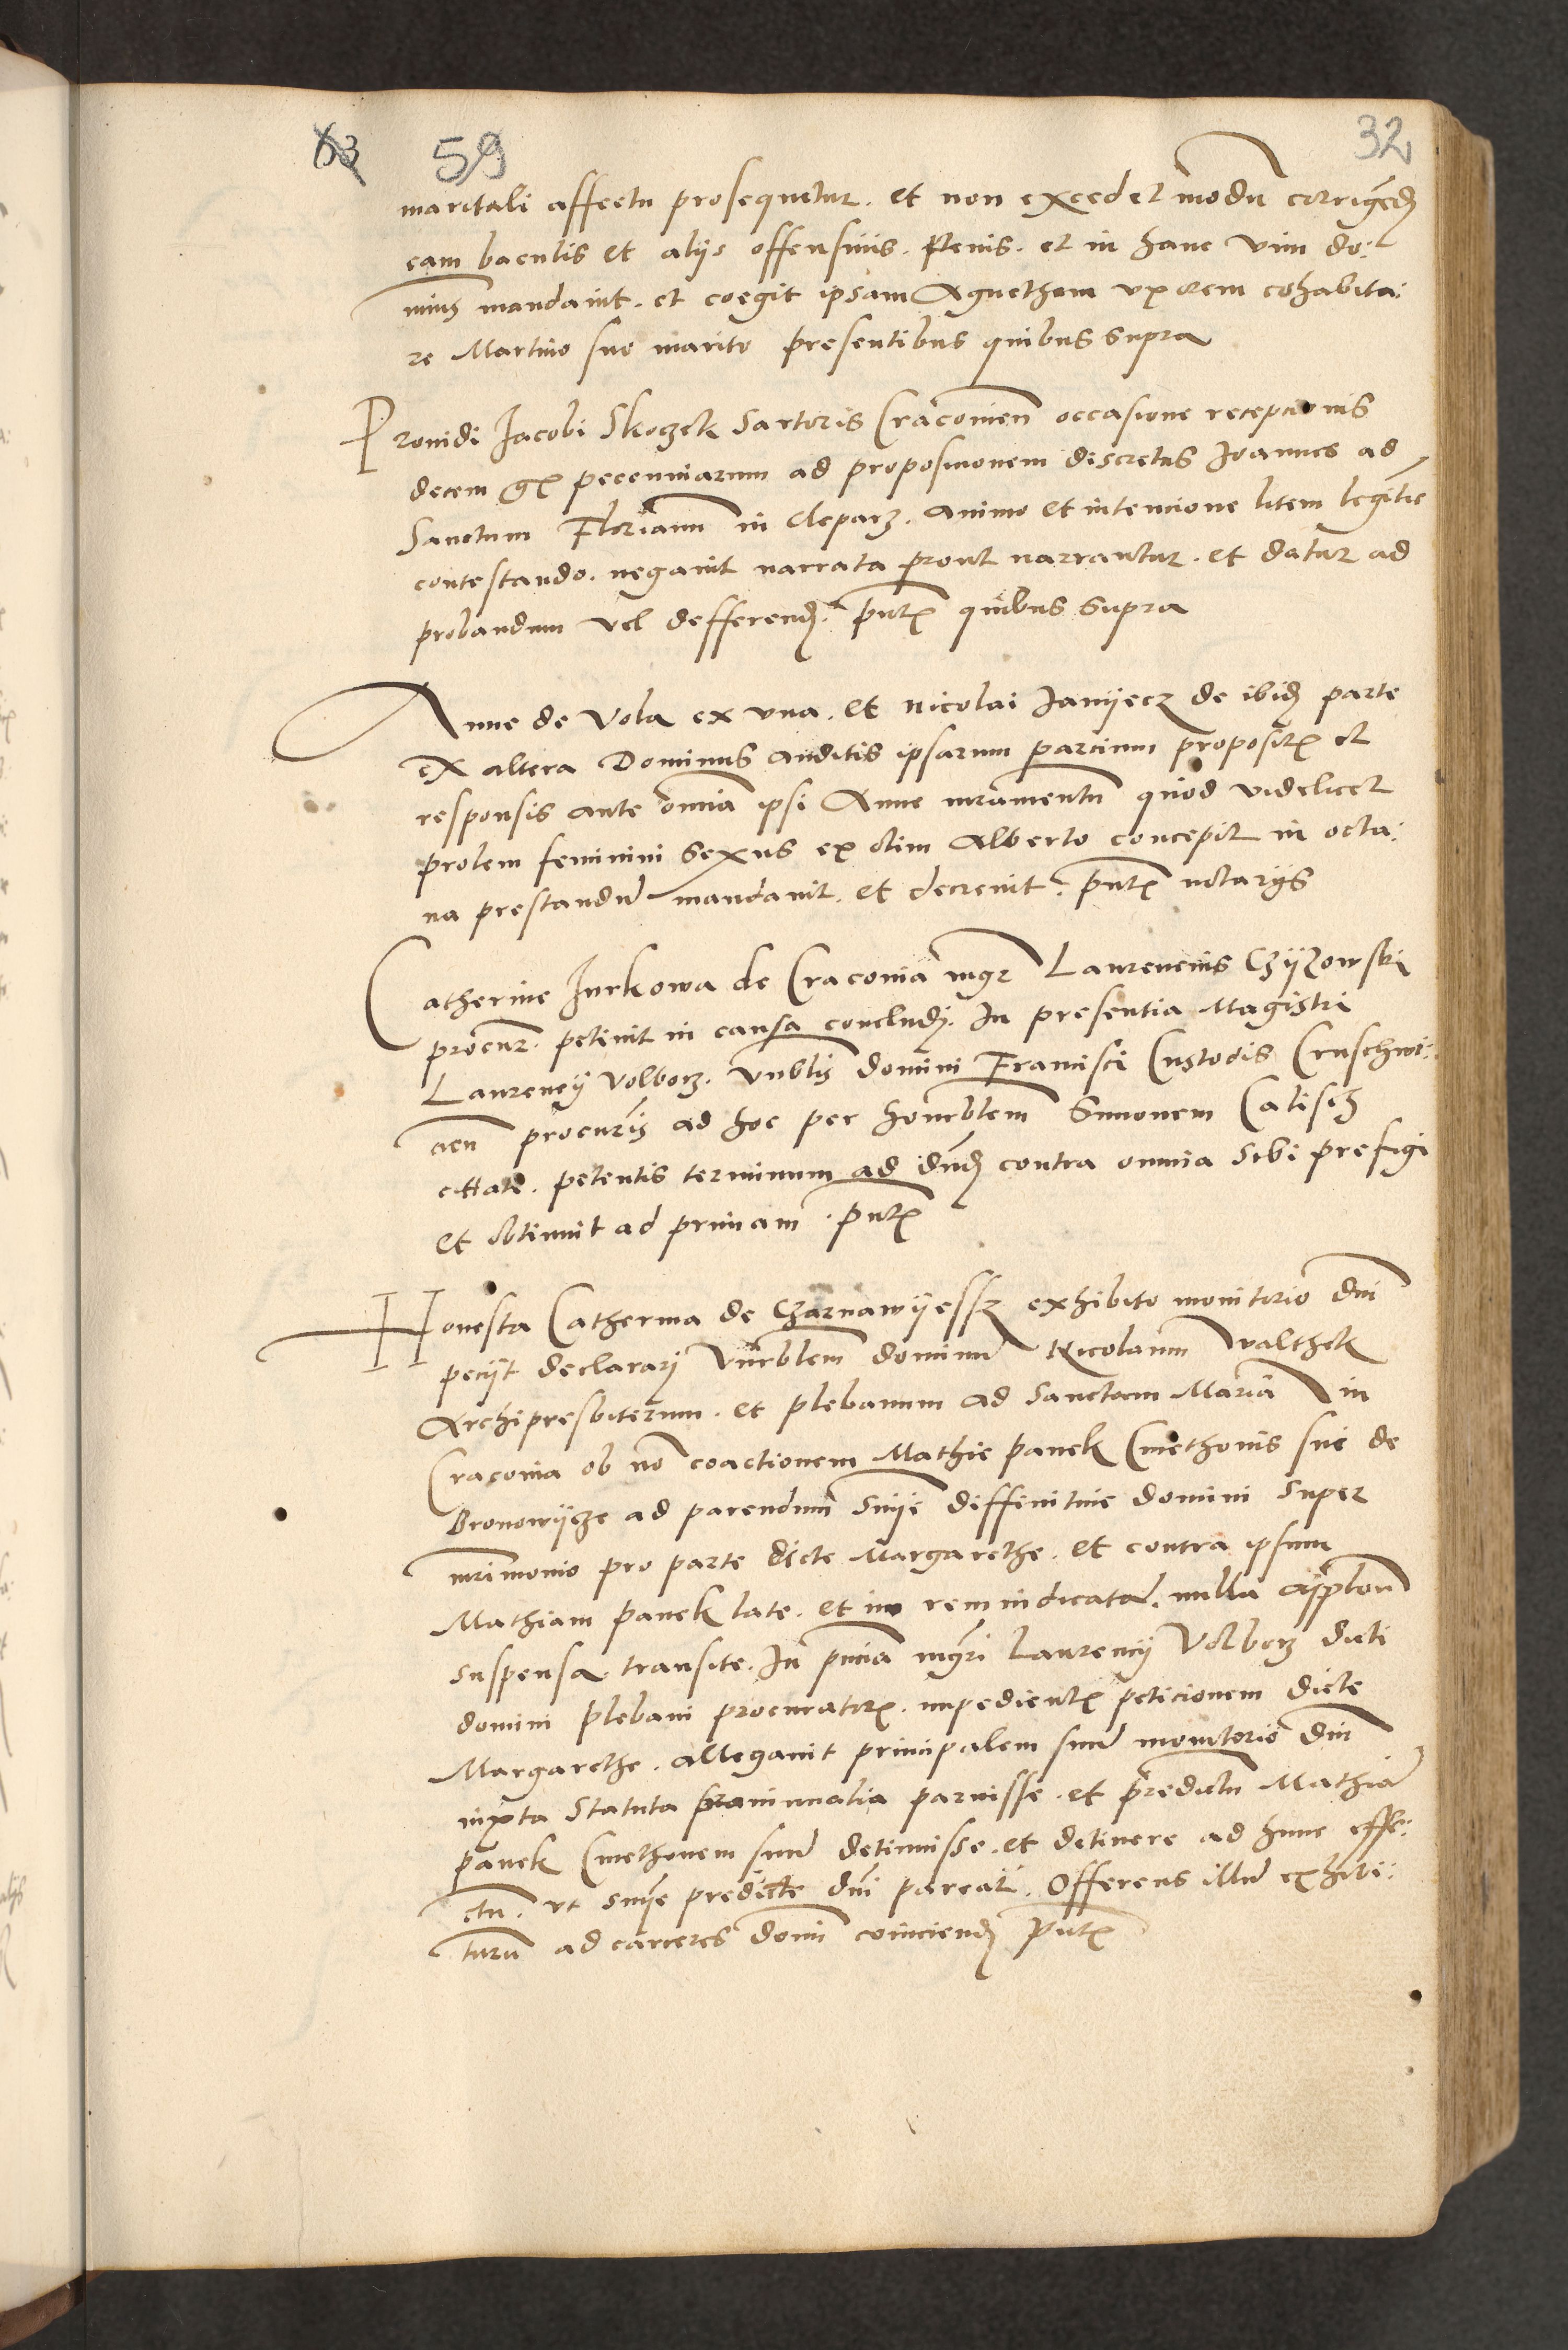 63 59 32
maritali affectu prosequetur. et non excedet modu corrigend
eam baculis et alijs offensiuis. Penis. et in hanc vim do:
minus mandauit. et coegit ipsam Agnethem vxorem cohabita:
re Martino suo marito presentibus quibus supra
Prouidi Jacobi Skoczek Sartoris Cracouien occasione recepcionis
decem gr pecuniarum ad proposicionem discretus Joannes ad
Sanctum Florianu in Cleparz. animo et intencione litem legitie
contestando. negauit narrata prout narrantur. et datur ad
probandum vel defferend. pntx quibus supra
Anne de Vola ex vna. et Nicolai Janijecz de ibid parte
ex altera Dominus auditis ipsarum parcium propositx et
responsis ante omia ipsi Anne iuramentu quod videlicet
prolem feminini sexus ex olim Alberto concepit in octa:
ua prestandu mandauit. et decreuit. pntx notarijs
Catherine Jurkowa de Cracouia mgr Laurencius Czyzowski
procur. petiuit in causa concludj. In presentia Magistri
Laurencij Volborz. Vnblis domini Francisci Custodis Cruschwi:
cien procuris ad hoc per honrblem Simonem Calisch
cittati. petentis terminum ad dnd contra omnia sibi prefigi
et obtinuit ad primam. pntx
Honesta Catherina de Czarnawyessz exhibito monitorio dni
pecijt declararj Vnrblem dominu Nicolaum Walthek
Archipresbiterum. et plebanum ad Sanctam Maria in
Cracouia ob no coactionem Mathie panek Cmethonis sui de
Bronowycze ad parendum Snije diffinitiue domini super
mrimonio pro parte dicte Margarethe. et contra ipsum
Mathiam panek late. et in rem iudicata. nulla applone
suspensa transite. In pncia mgri Laurencij Volborz dicti
domini plebani procuratorx. impedientx peticionem dicte
Margarethe. allegauit principalem suu monitorio dni
iuxta Statuta prouincialia paruisse. et predictu Mathia
panek Cmethonem suu detinuisse. et detinere ad hunc effe:
ctu. vt snije predicte dni pareat. Offerens illu exhibi:
turu ad carceres domi conuinciend pntx